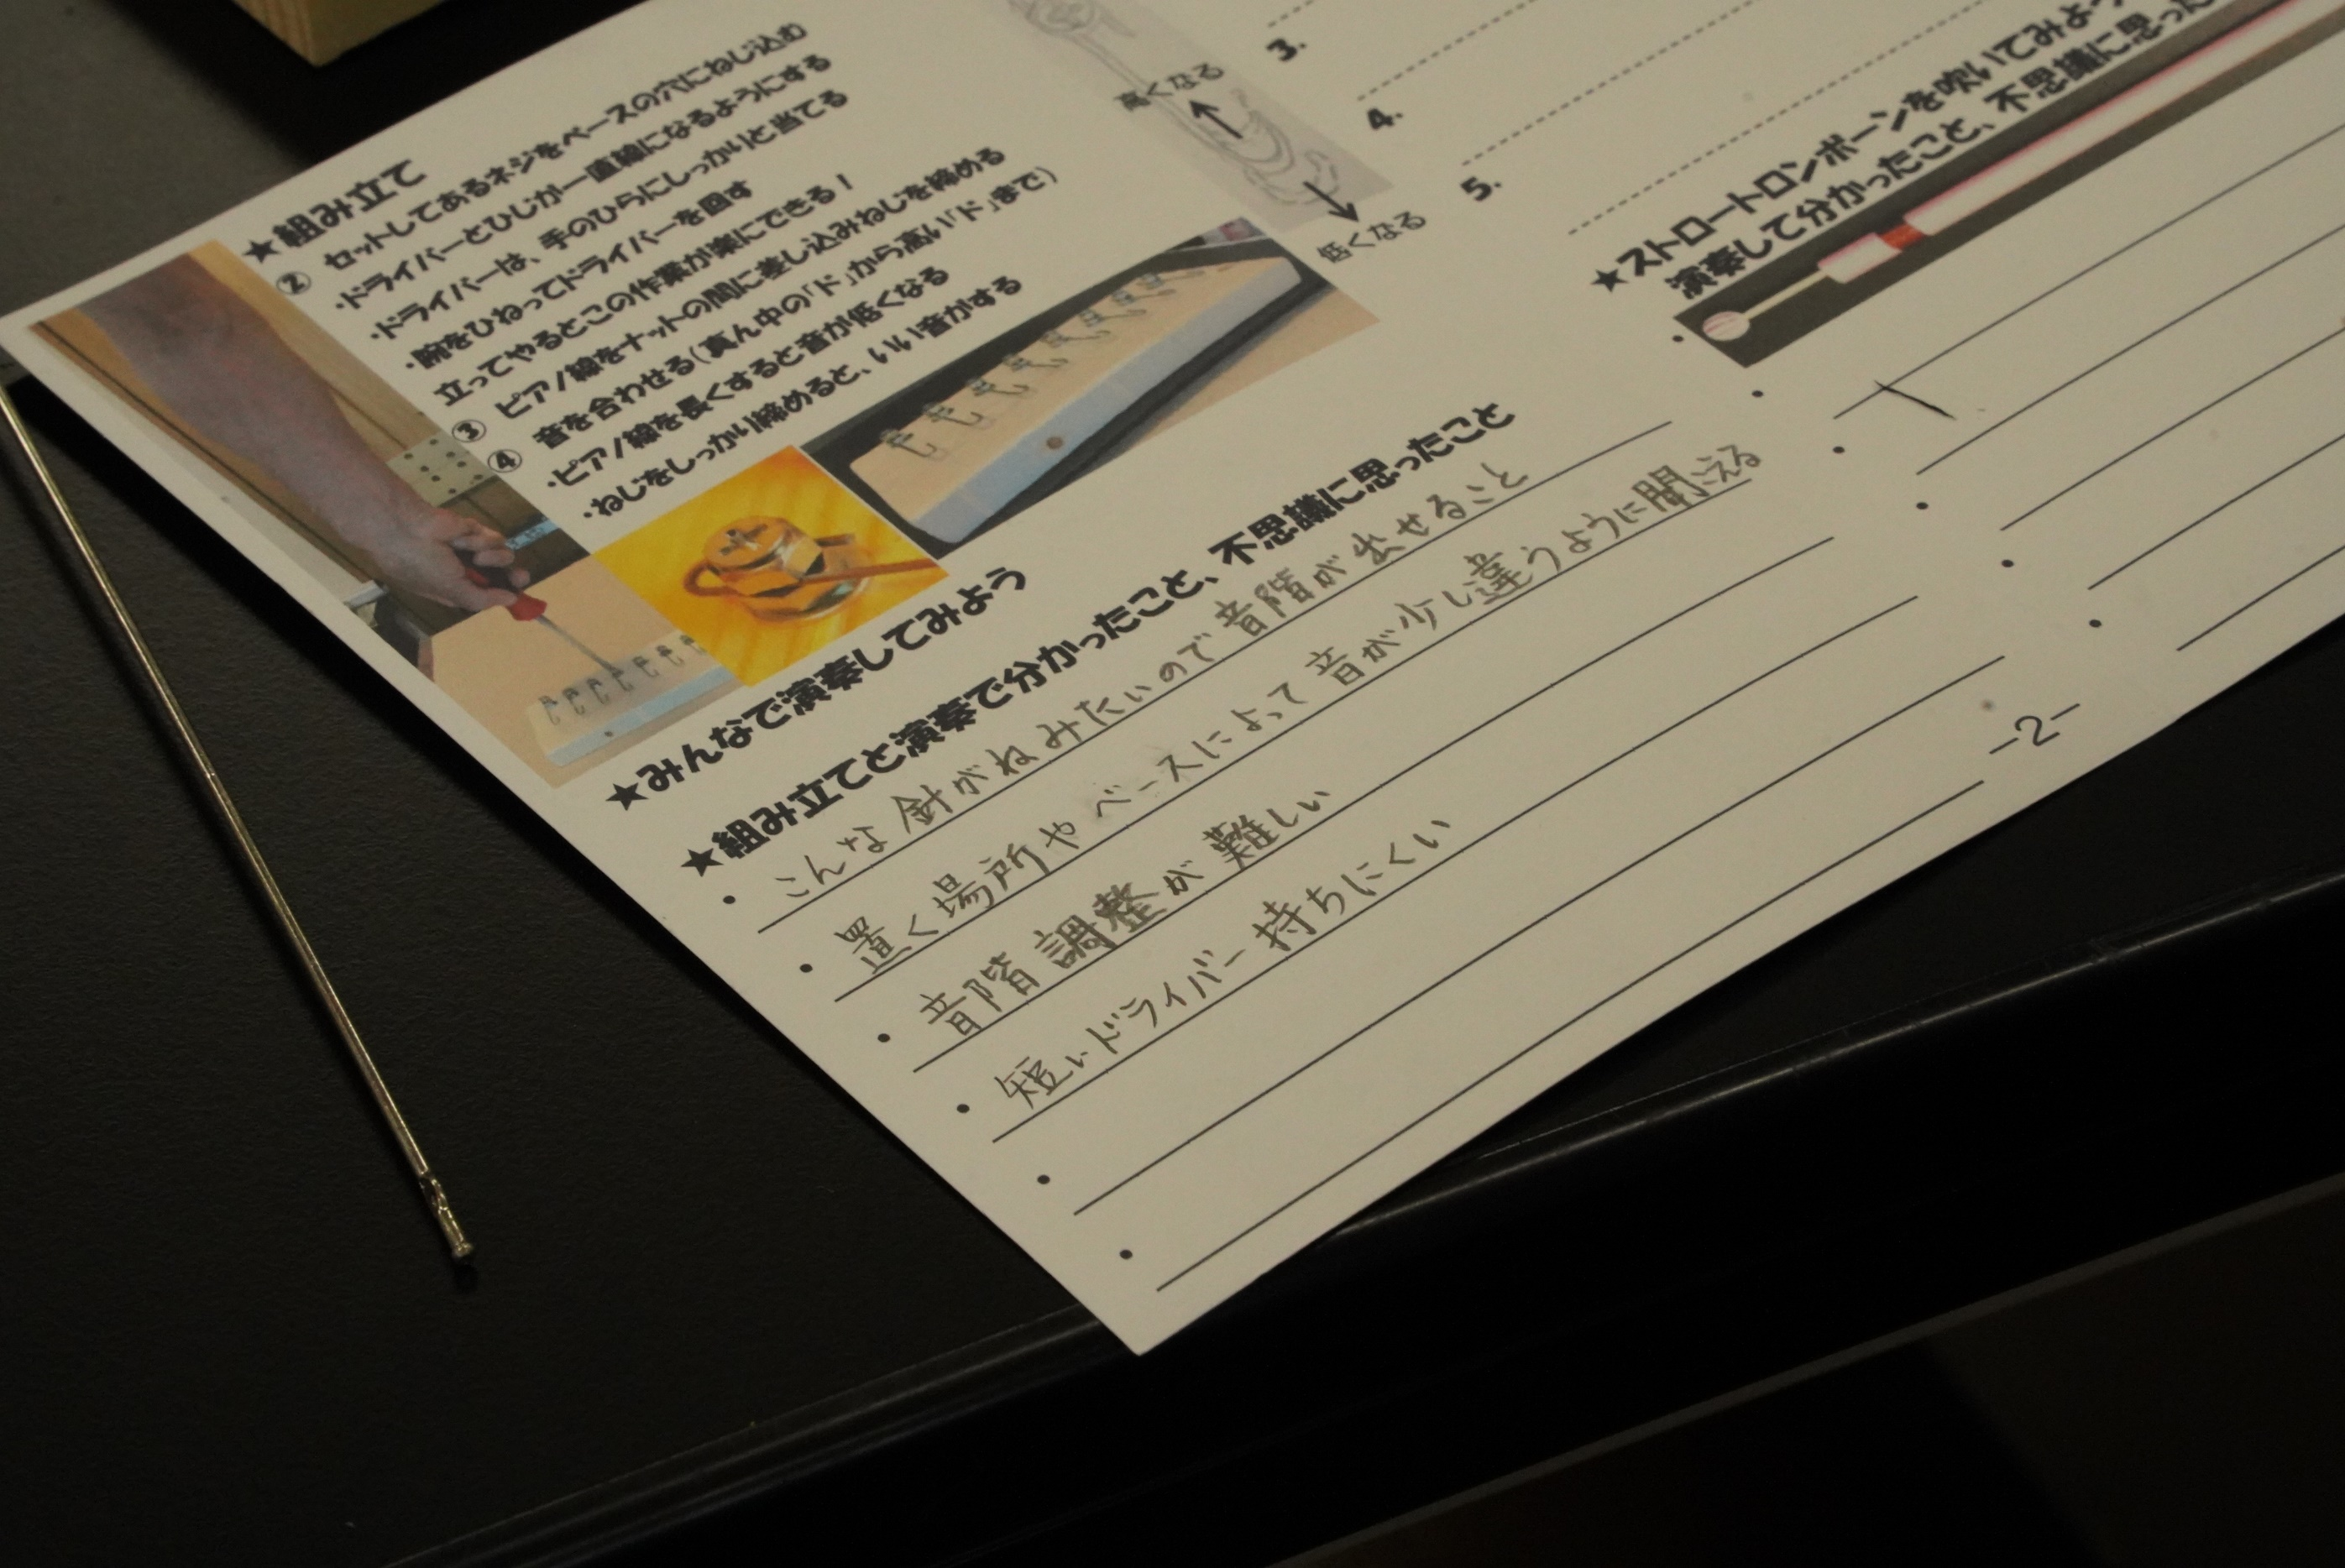 ★組み立て
② セットしてあるネジをベースの穴にねじ込む
・ドライバーとひじが一直線になるようにする
・ドライバーは、手のひらにしっかりと当てる
・腕をひねってドライバーを回す
立ってやるとこの作業が楽にできる！
③ ピアノ線をナットの間に差し込みねじを締める
④ 音を合わせる(真ん中の「ド」から高い「ド」まで)
・ピアノ線を長くすると音が低くなる
・ねじをしっかり締めると、いい音がする
高くなる
低くなる
★みんなで演奏してみよう
★組み立てと演奏で分かったこと、不思議に思ったこと
・こんな針がねみたいので音階が出せること
・置く場所やベースによって音が少し違うように聞こえる
・音階調整が難しい
・短いドライバー持ちにくい
・
・
3.
4.
5.
★ストロートロンボーンを吹いてみよう
演奏して分かったこと、不思議に思った
・
・
・
・
・
・
-2-